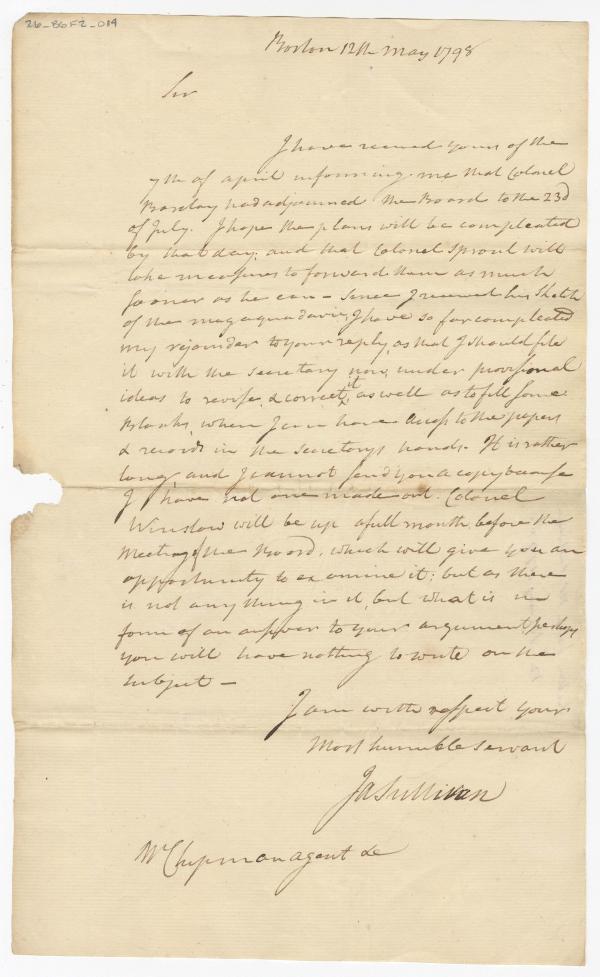 26-B6F2-014
Boston 12th May 1798
Sir
I have received yours of the
7th of april informing me that Colonel
Barclay had adjourned the Board to the 23d
of July. I hope the plans will be compleated
by that day; and that Colonel Sproul will
take measures to forward them as much
sooner as he can — since I received his Sketch
of the magaguadavic, I have so far compleated
my rejoinder to your reply, as that I should file
it with the secretary now, under provisional
ideas to revise, & correct it, as well as to fill some
Blanks, when I can have access to the papers
& records in the secretarys hands. It is rather
long, and I cannot send you a copy because
I have not one made out. Colonel
Winslow will be up a full month before the
meeting of the Board, which will give you an
opportunity to examine it; but as there
is not any thing in it, but what is in
form of an answer to your argument, perhaps
you will have nothing to write on the
subject —
I am with respect your
most humble servant
Ja Sullivan
Mr Chipman agent &c